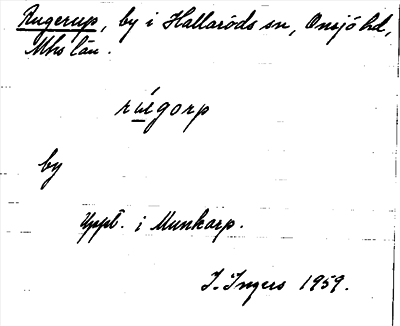 Rugerup, by i Hallaröds sn, Onsjö hd,
Mhs län.
rúgorp
by
Uppt. i Munkarp.
I. Ingers 1959.